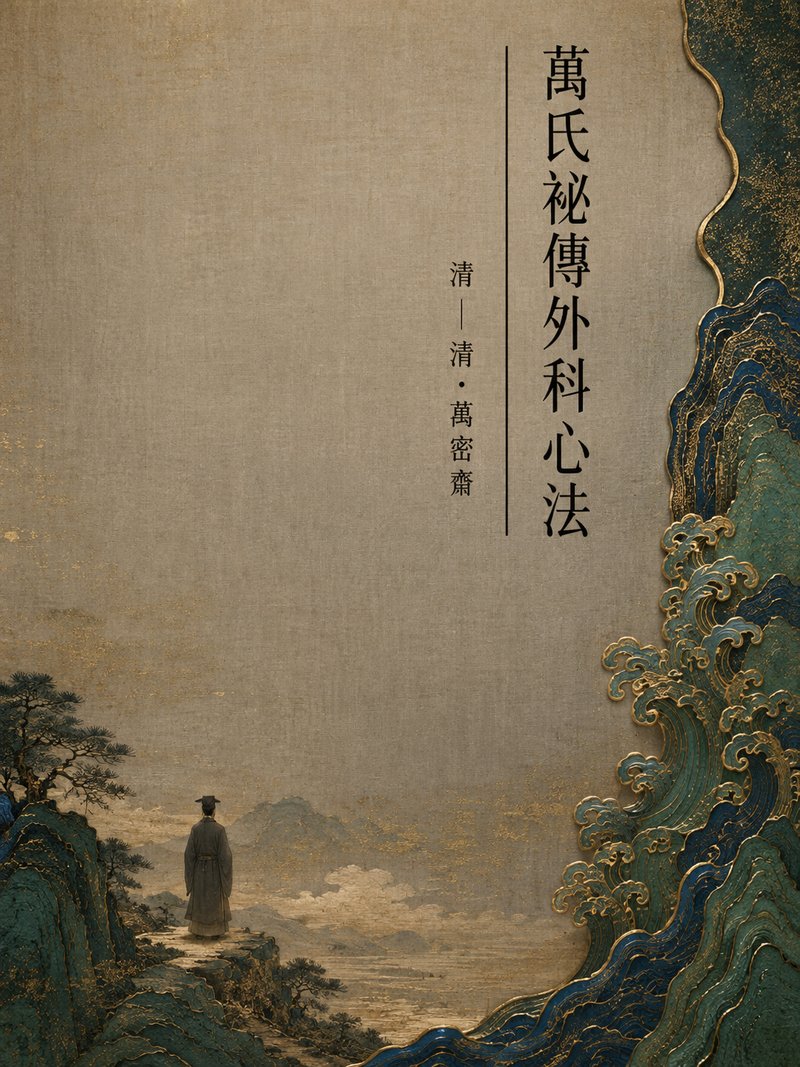 萬氏祕傳外科心法
清—清·萬密齋